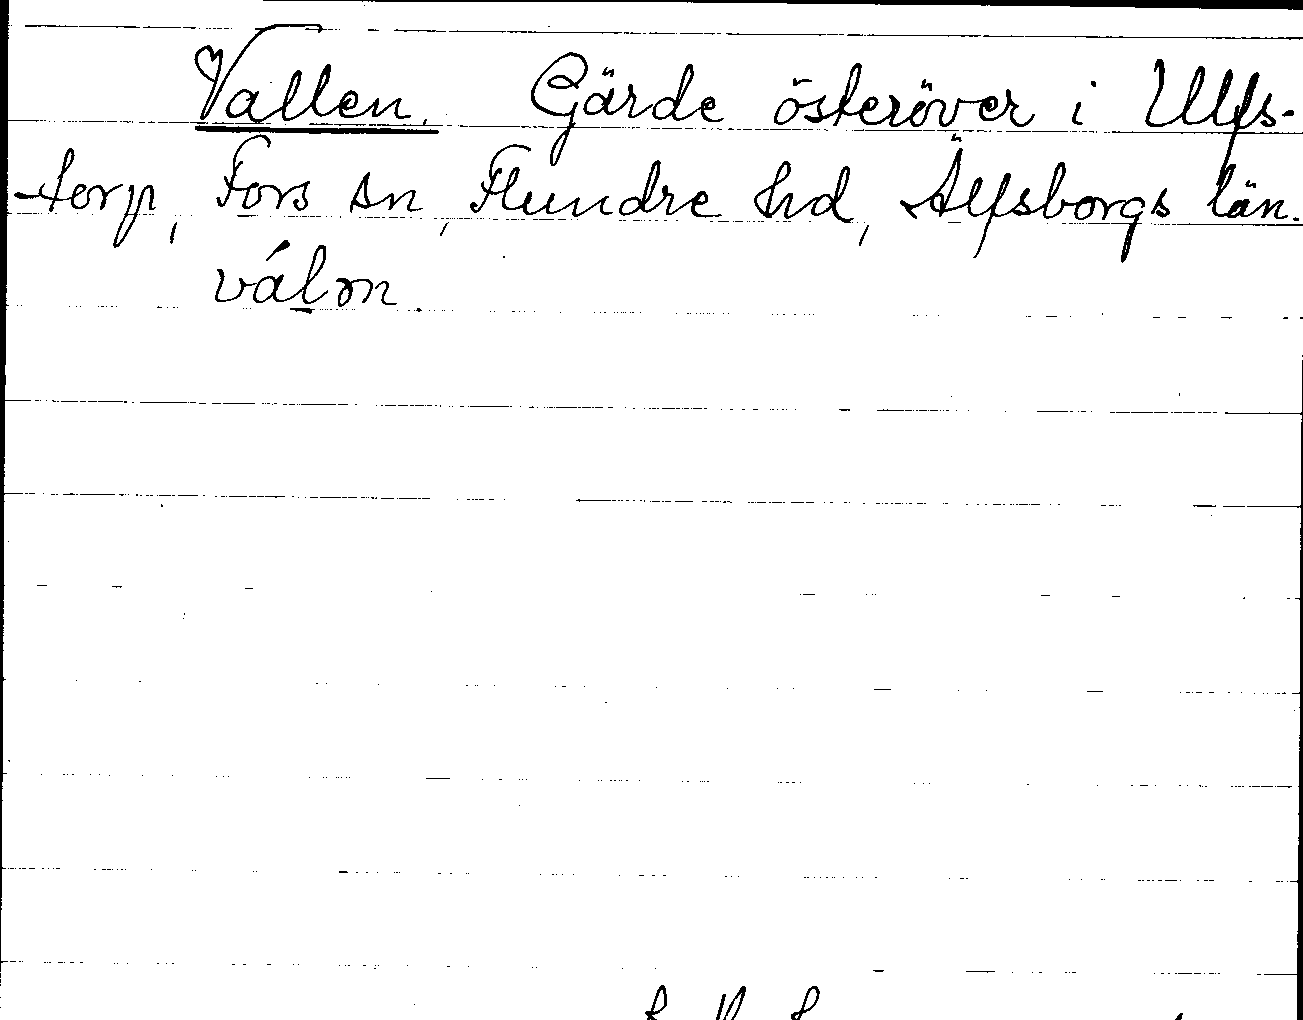 Vallen. Gärde österöver i Ulfs-
-torp, Fors sn, Flundre hd, Älfsborgs län.
válɘn.